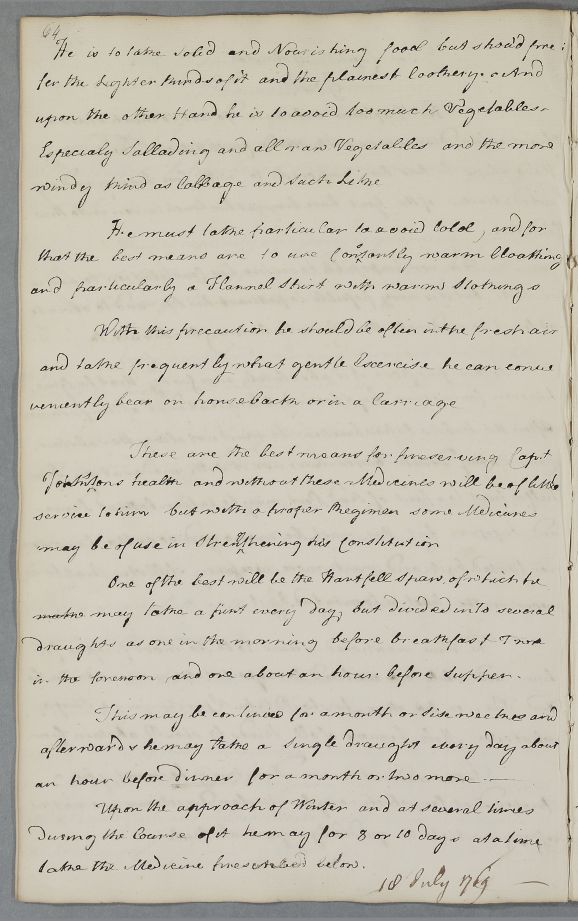 64
He is to take solid and Nourishing food but should prefer
fer the Lighter kinds of it and the plainest Cookery. And
upon the other Hand he is to avoid too much Vegetables
Especialy Sallading and all raw Vegetables and the more
windy kind as Cabbage and such Like
He must take particular to avoid Cold, and for
that the best means are to use Constantly warm Cloathing
and particularly a Flannel Shirt with warm Stokings
With this precaution he should be often in the fresh air
and take frequently what gentle Exercise he can conve
veniently bear on horseback or in a Carriage
These are the best means for preserving Capt
Johnstons health and without these Medicines will be of little
service to him but with a proper Regimen some Medicines
may be of use in Strengthening his Constitution
One of the best will be the Hartfell Spaw, of which he
make may take a pint every day, but divided into several
draughts as one in the morning before breakfast Two
in the forenoon and one about an hour before Supper.
This may be continued for a month or six weeks and
afterwards he may take a single draught every day about
an hour before dinner for a month or two more
Upon the approach of Winter and at several times
During the Course of it he may for 8 or 10 days at a time
take the Medicine prescribed below.
18 July 1769